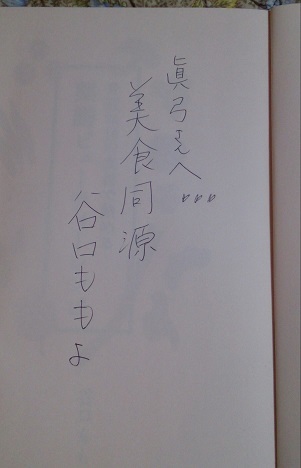 眞弓さんへ〃〃
美食同源
谷口ももよ